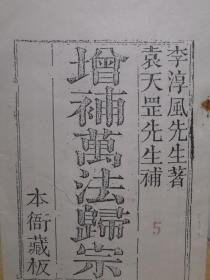 李淳風先生著
袁天罡先生補
5
增補萬法歸宗
本衙藏板